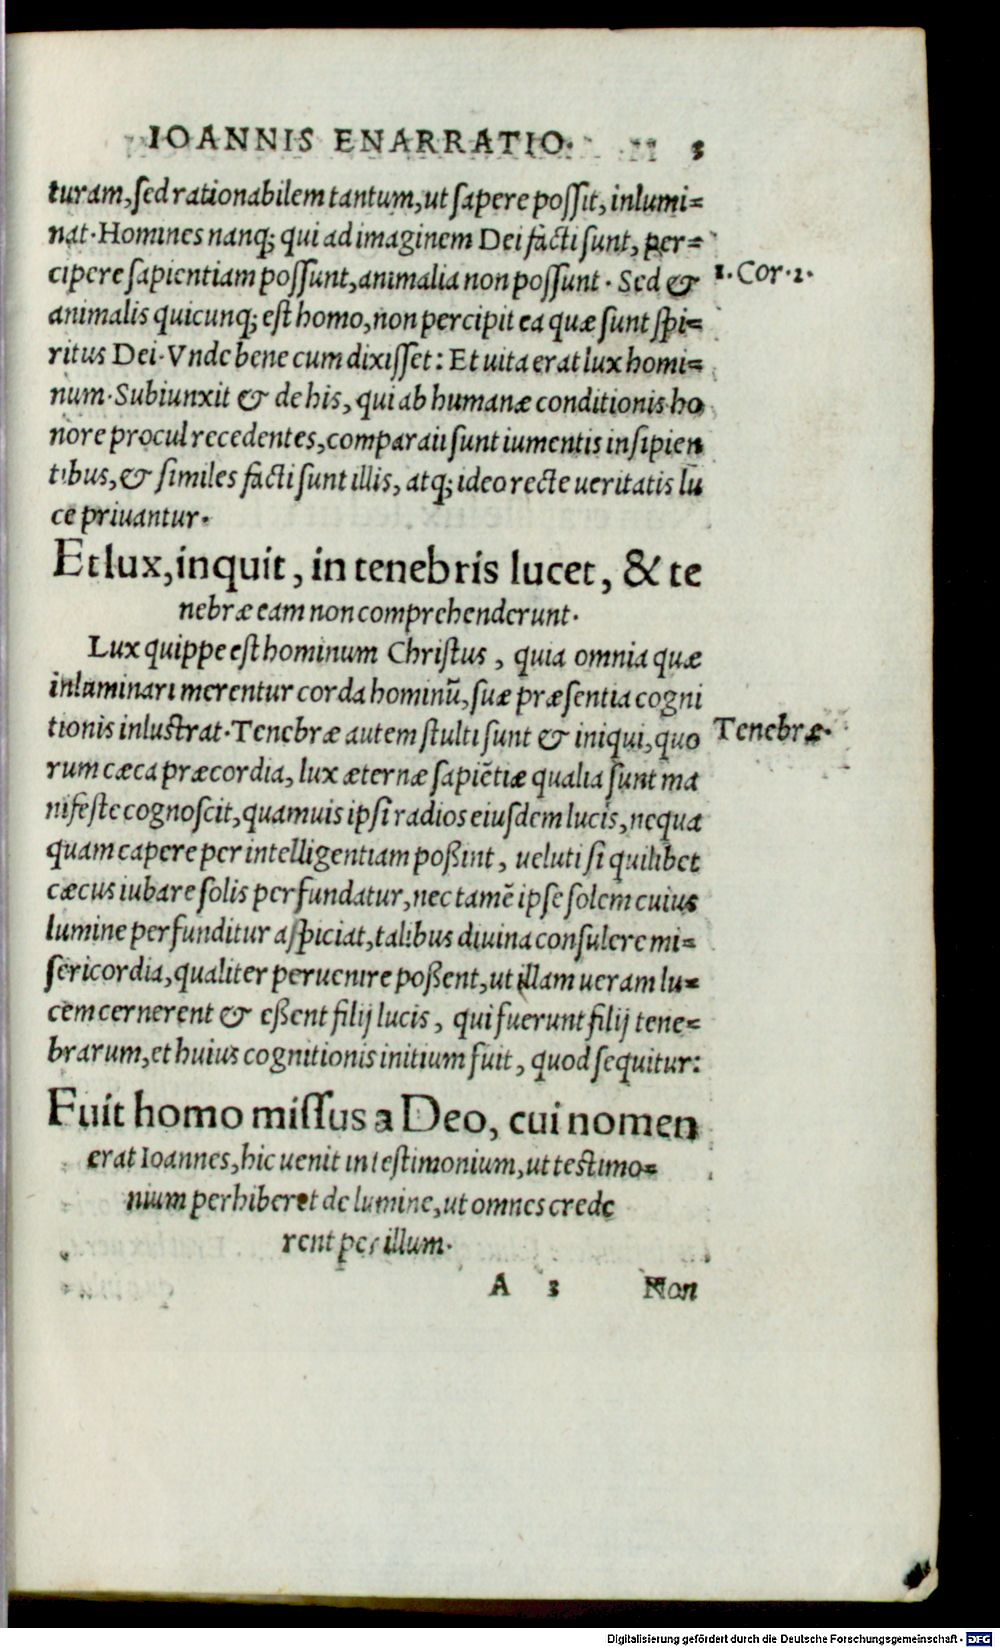 IOANNIS ENARRATIO. 3
turam, sed rationabilem tantum, ut sapere possit, inlumi=
nat. Homines nanq; qui ad imaginem Dei facti sunt, per=
cipere sapientiam possunt, animalia non possunt. Sed &
1. Cor. 2.
animalis quicunq; est homo, non percipit ea quæ sunt spi=
ritus Dei. Vnde bene cum dixisset: Et uita erat lux homi=
num. Subiunxit & de his, qui ab humanæ conditionis ho
nore procul recedentes, comparati sunt iumentis insipien
tibus, & similes facti sunt illis, atq; ideo recte ueritatis lu
ce priuantur.
Et lux, inquit, in tenebris lucet, & te
nebræ eam non comprehenderunt.
Lux quippe est hominum Christus, quia omnia quæ
inluminari merentur corda hominū, suæ præsentia cogni
tionis inlustrat. Tenebræ autem stulti sunt & iniqui, quo
Tenebræ.
rum cæca præcordia, lux æternæ sapiētiæ qualia sunt ma
nifeste cognoscit, quamuis ipsi radios eiusdem lucis, nequa
quam capere per intelligentiam poßint, ueluti si quilibet
cæcus iubare solis perfundatur, nec tamē ipse solem cuius
lumine perfunditur aspiciat, talibus diuina consulere mi=
sericordia, qualiter peruenire poßent, ut illam ueram lu=
cem cernerent & eßent filij lucis, qui fuerunt filij tene=
brarum, et huius cognitionis initium fuit, quod sequitur:
Fuit homo missus a Deo, cui nomen
erat Ioannes, hic uenit in testimonium, ut testimo=
nium perhiberet de lumine, ut omnes crede
rent per illum.
A 3 Non
Digitalisierung gefördert durch die Deutsche Forschungsgemeinschaft - DFG